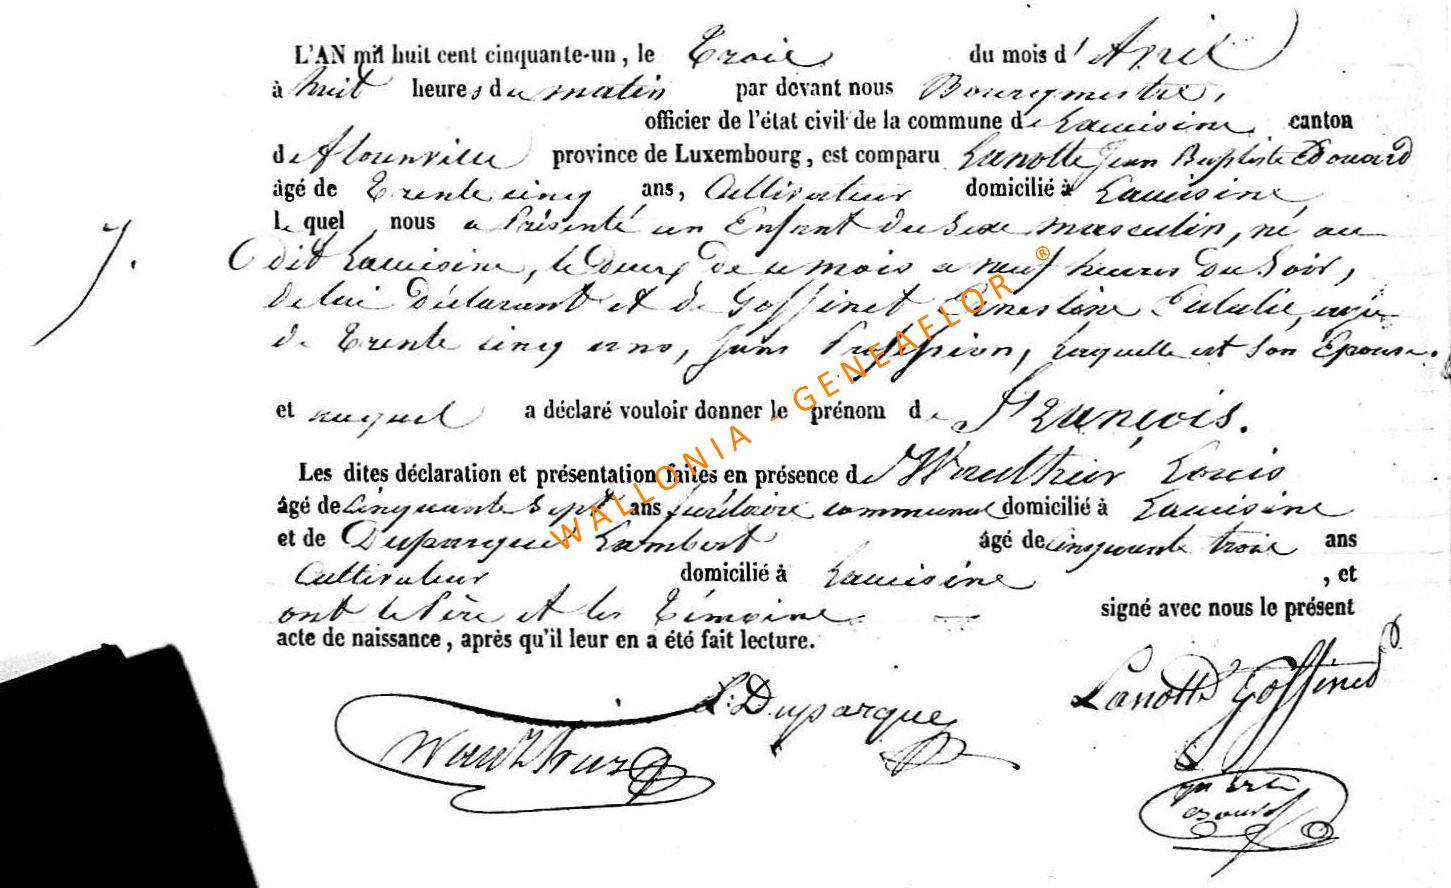 L'AN mil huit cent cinquante-un, le Trois du mois d'Avril
à huit heures du matin par devant nous Bourgmestre,
officier de l'état civil de la commune de Lacuisine, canton
de Florenville province de Luxembourg, est comparu Lanotte Jean Baptiste Edouard
âgé de Trente cinq ans, Cultivateur domicilié à Lacuisine,
lequel nous a Présenté un Enfant du Sexe masculin, né au
7. dit Lacuisine, le Deux de ce mois a neuf heures Du Soir,
de lui Déclarant et de Goffinet Ernestine Eulalie, agée
de Trente cinq ans, Sans Profession, Laquelle est Son Epouse.
et auquel a déclaré vouloir donner le prénom de François.
Les dites déclaration et présentation faites en présence de Wauthier Louis
âgé de Cinquante Sept ans Secrétaire communal domicilié à Lacuisine
et de Duparque Lambert âgé de cinquante trois ans
Cultivateur domicilié à Lacuisine, et
ont le Père et les Témoins signé avec nous le présent
acte de naissance, après qu'il leur en a été fait lecture.
L. Duparque Lanotte Goffinet
Wauthier
WALLONIA - GENEAFLOR ®